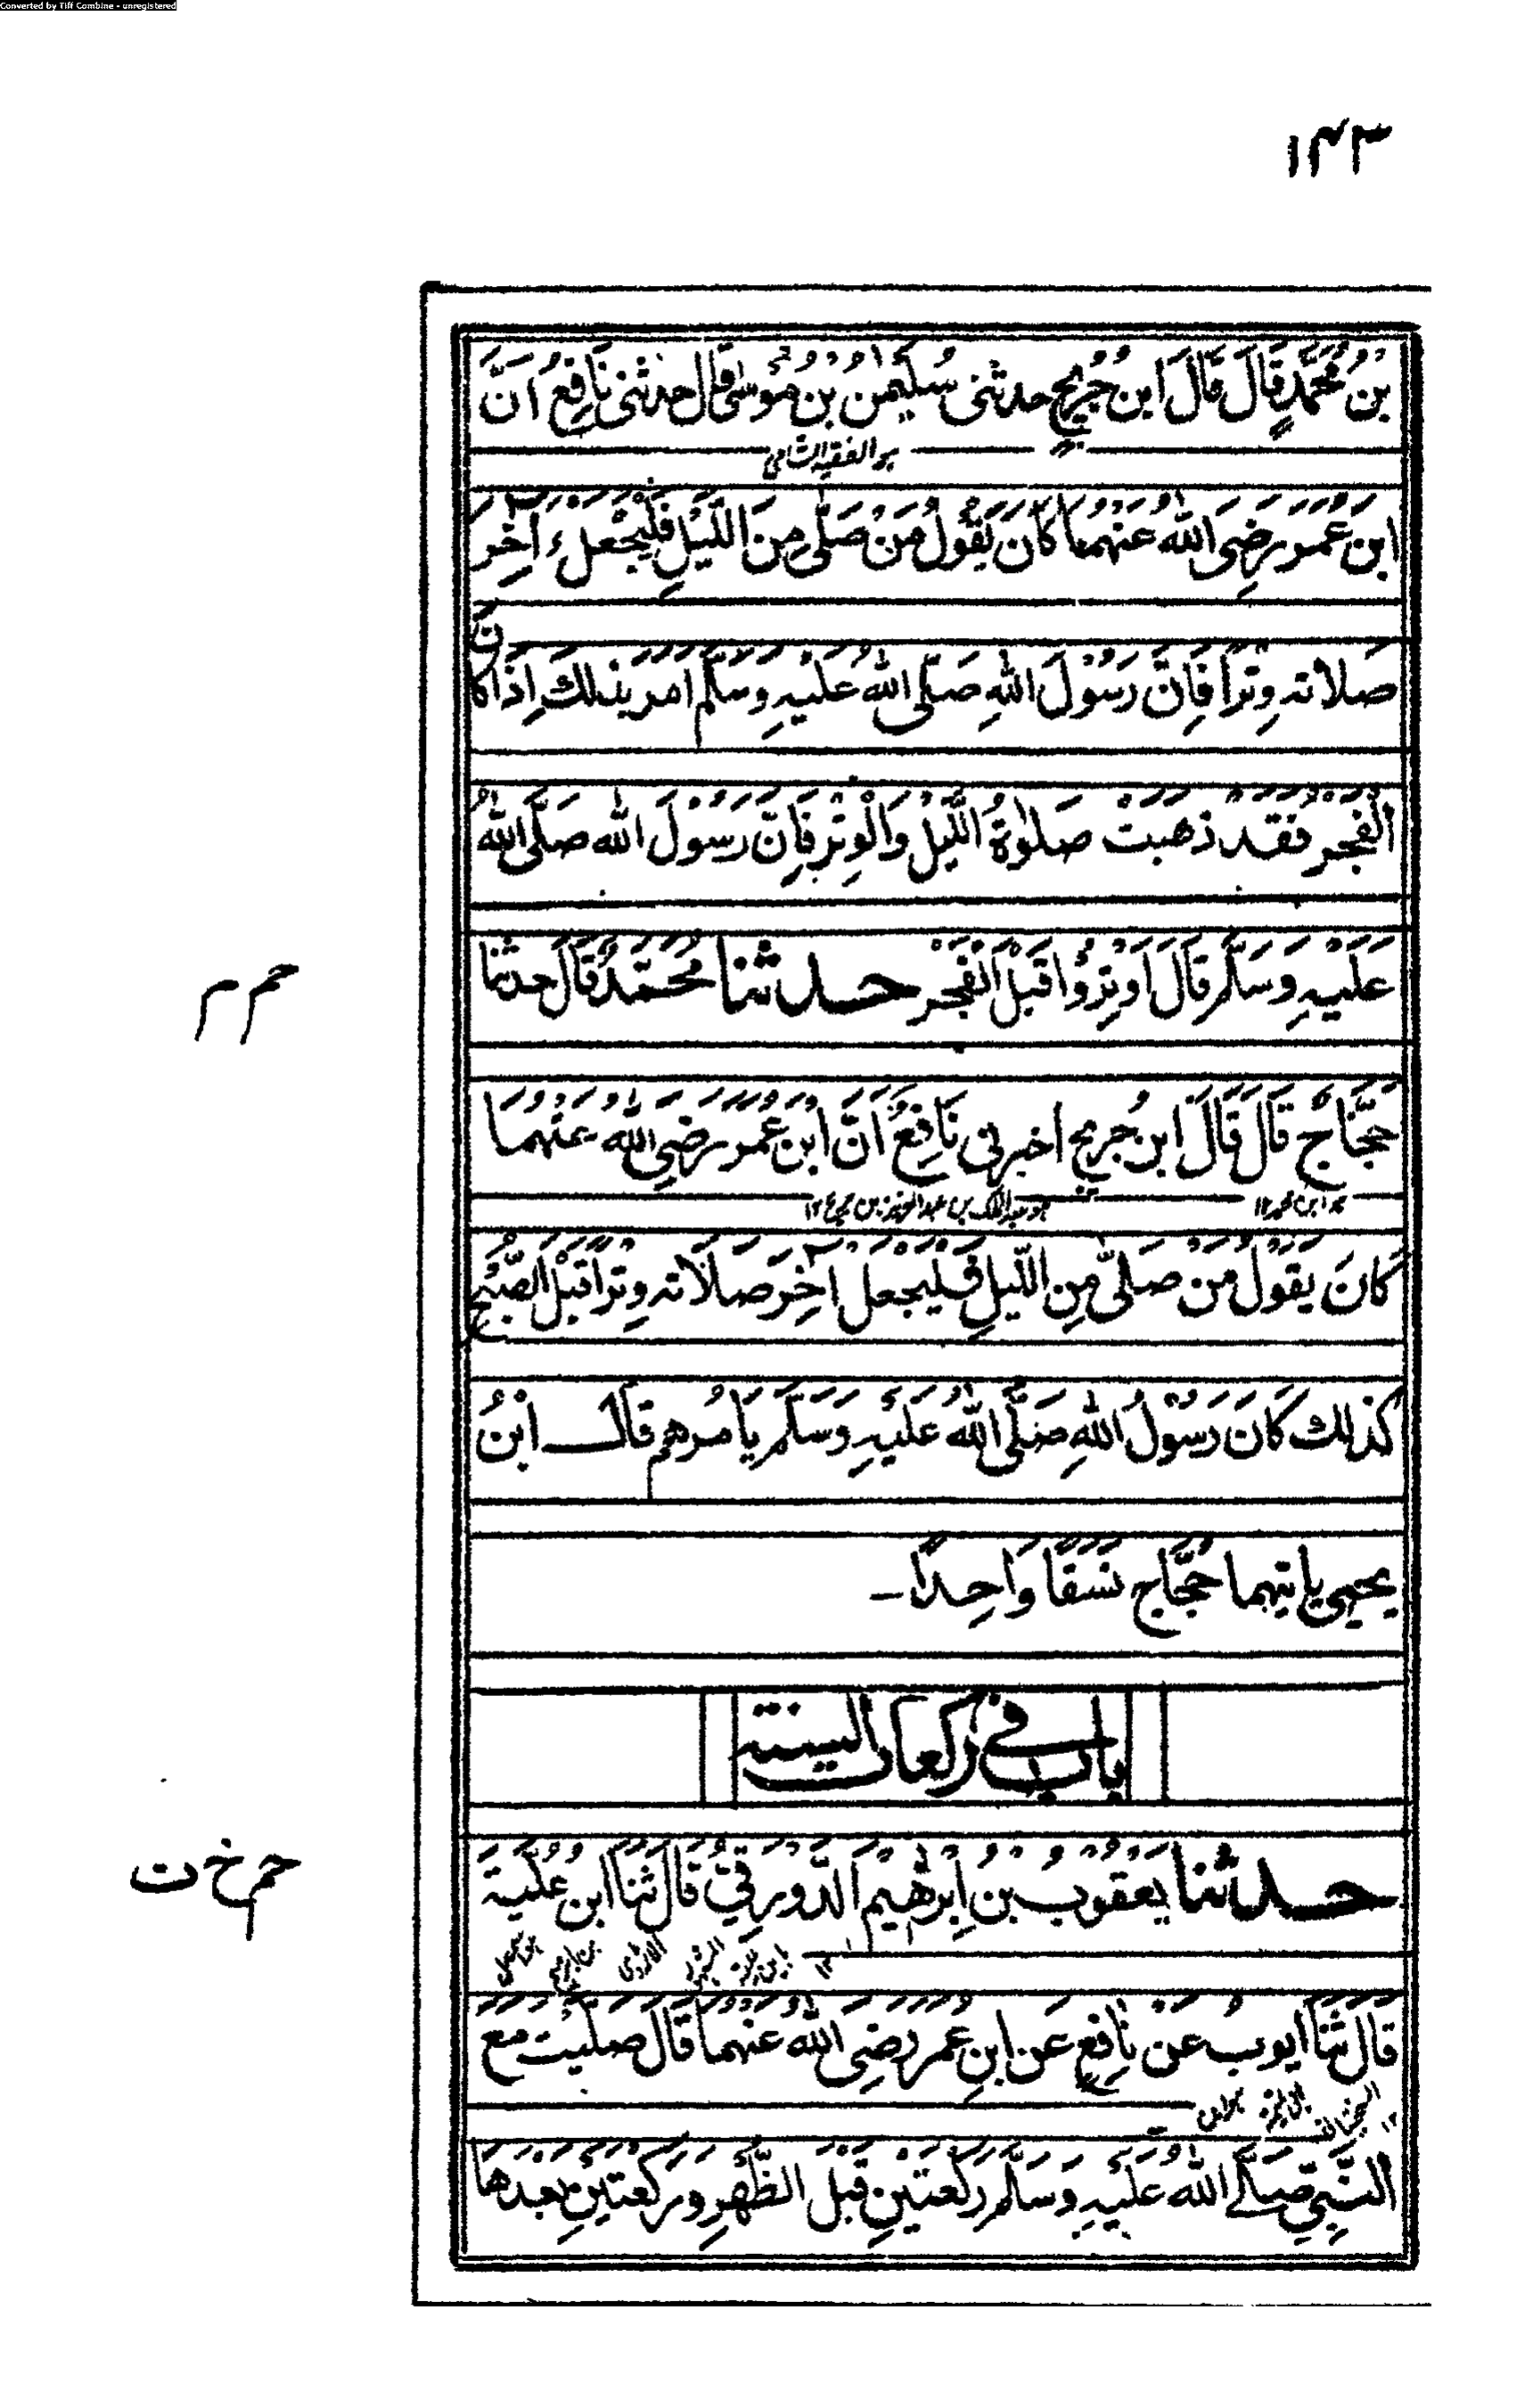 Converted by Tiff Combine - unregistered
١٤٣
بْنُ مُحَمَّدٍ قَالَ قَالَ ابْنُ جُرَيْجٍ حدثنى سُلَيْمٰنُ بْنُ مُوْسٰى قال حدثنى نَافِعٌ اَنَّ
هو الفقيه الشامى
ابنَ عُمَرَ رَضِىَ اللهُ عَنْهُمَا كَانَ يَقُوْلُ مَنْ صَلّٰى مِنَ اللَّيْلِ فَلْيَجْعَلْ آخِرَ
صَلاتهٖ وِتْرًا فَاِنَّ رَسُوْلَ اللهِ صَلَّى اللهُ عَلَيْهِ وَسَلَّمَ اَمَرَ بِذٰلكَ اِذَا كَانَ
الْفَجْرُ فَقَدْ ذَهَبَتْ صَلٰوةُ اللَّيْلِ وَالْوِتْرُ فَاِنَّ رَسُوْلَ الله صَلَّى اللهُ
عَلَيْهِ وَسَلَّمَ قَالَ اَوْتِرُوْا قَبْلَ الْفَجْرِ حـدثنا مُحَمَّدٌ قَالَ حدثنا
حم م
حَجَّاجٌ قَالَ قَالَ ابنُ جُريجٍ اخبرنى نَافِعٌ اَنَّ ابْنَ عُمَرَ رَضِىَ اللهُ عَنْهُمَا
هو ابن محمد ١٢ هو عبدالملك بن عبدالعزيز بن جريج ١٢
كَانَ يَقُوْلُ مَنْ صَلّٰى مِنَ اللَّيْلِ فَلْيَجْعَلْ آخِرَ صَلَاتهٖ وِتْرًا قَبْلَ الصُّبْحِ
كذٰلك كَانَ رَسُوْلُ اللهِ صَلَّى اللهُ عَلَيْهِ وَسَلَّمَ يَامُرُهُمْ قَالَ ابْنُ
يحيى ياتيهما حَجَّاج نَسَقًا وَاحِدًا ـ
باب فى ركعات السنة
حـدثنا يَعْقُوْبُ بْنُ اِبْرٰهِيْمَ الدَّوْرَقِىُّ قَالَ ثَنَا ابنُ عُلَيَّةَ
حم خ ت
قَالَ ثَنَا ايوبُ عَنْ نَافِعٍ عَنِ ابنِ عُمَرَ رَضِىَ اللهُ عَنْهُمَا قَالَ صَلَّيْتُ مَعَ
النَّبِىِّ صَلَّى اللهُ عَلَيْهِ وَسَلَّمَ رَكْعَتَيْنِ قَبْلَ الظُّهْرِ وَرَكْعَتَيْنِ بَعْدَهَا